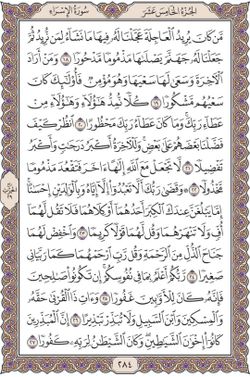 سُورَةُ الإِسْرَاءِ
الجُزْءُ الخَامِسَ عَشَرَ
مَّن كَانَ يُرِيدُ ٱلْعَاجِلَةَ عَجَّلْنَا لَهُۥ فِيهَا مَا نَشَآءُ لِمَن نُّرِيدُ ثُمَّ
جَعَلْنَا لَهُۥ جَهَنَّمَ يَصْلَىٰهَا مَذْمُومًا مَّدْحُورًا ١٨ وَمَنْ أَرَادَ
ٱلْأَخِرَةَ وَسَعَىٰ لَهَا سَعْيَهَا وَهُوَ مُؤْمِنٌ فَأُو۟لَٰٓئِكَ كَانَ
سَعْيُهُم مَّشْكُورًا ١٩ كُلًّا نُّمِدُّ هَٰٓؤُلَآءِ وَهَٰٓؤُلَآءِ مِنْ
عَطَآءِ رَبِّكَ وَمَا كَانَ عَطَآءُ رَبِّكَ مَحْظُورًا ٢٠ ٱنظُرْ كَيْفَ
فَضَّلْنَا بَعْضَهُمْ عَلَىٰ بَعْضٍ وَلَلْأَخِرَةُ أَكْبَرُ دَرَجَٰتٍ وَأَكْبَرُ
تَفْضِيلًا ٢١ لَّا تَجْعَلْ مَعَ ٱللَّهِ إِلَٰهًا ءَاخَرَ فَتَقْعُدَ مَذْمُومًا
مَّخْذُولًا ٢٢ وَقَضَىٰ رَبُّكَ أَلَّا تَعْبُدُوٓا۟ إِلَّآ إِيَّاهُ وَبِٱلْوَٰلِدَيْنِ إِحْسَٰنًا
إِمَّا يَبْلُغَنَّ عِندَكَ ٱلْكِبَرَ أَحَدُهُمَآ أَوْ كِلَاهُمَا فَلَا تَقُل لَّهُمَآ
أُفٍّ وَلَا تَنْهَرْهُمَا وَقُل لَّهُمَا قَوْلًا كَرِيمًا ٢٣ وَٱخْفِضْ لَهُمَا
جَنَاحَ ٱلذُّلِّ مِنَ ٱلرَّحْمَةِ وَقُل رَّبِّ ٱرْحَمْهُمَا كَمَا رَبَّيَانِي
صَغِيرًا ٢٤ رَّبُّكُمْ أَعْلَمُ بِمَا فِي نُفُوسِكُمْ إِن تَكُونُوا۟ صَٰلِحِينَ
فَإِنَّهُۥ كَانَ لِلْأَوَّٰبِينَ غَفُورًا ٢٥ وَءَاتِ ذَا ٱلْقُرْبَىٰ حَقَّهُۥ
وَٱلْمِسْكِينَ وَٱبْنَ ٱلسَّبِيلِ وَلَا تُبَذِّرْ تَبْذِيرًا ٢٦ إِنَّ ٱلْمُبَذِّرِينَ
كَانُوٓا۟ إِخْوَٰنَ ٱلشَّيَٰطِينِ وَكَانَ ٱلشَّيْطَٰنُ لِرَبِّهِۦ كَفُورًا ٢٧
٢٨٤